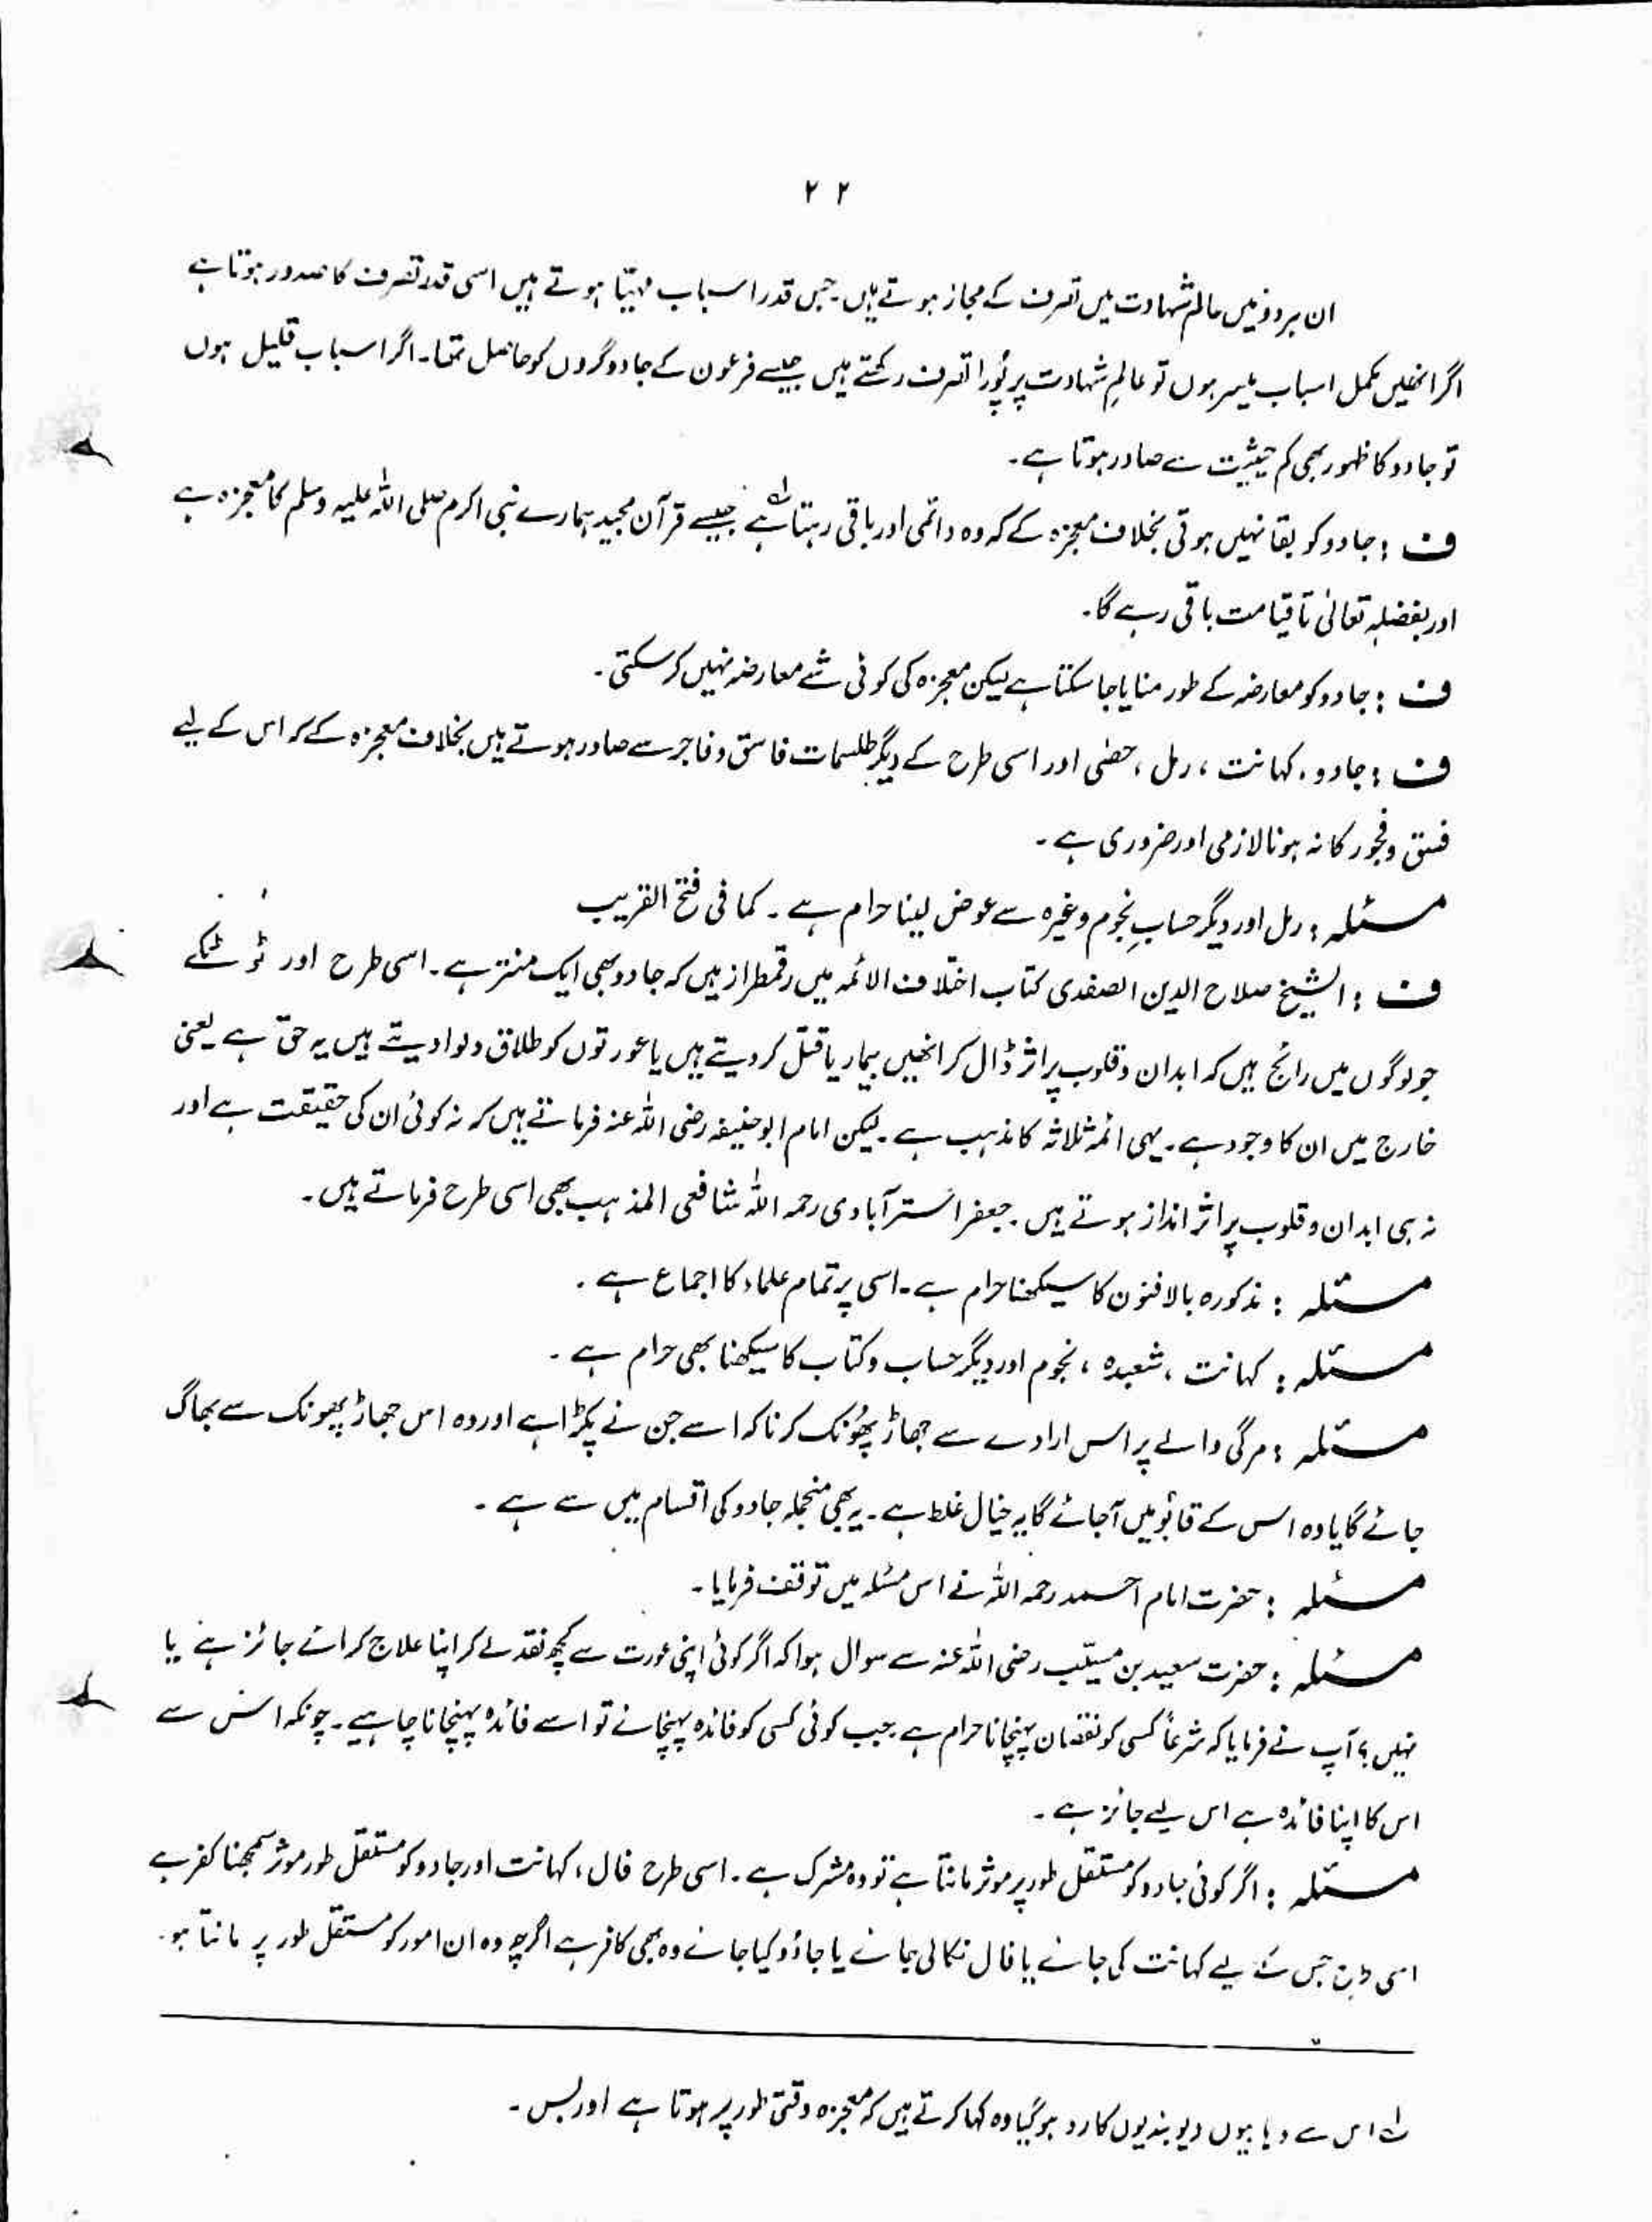 ۲۲
ان ہر دو نہیں عالم شہادت میں تصرف کے مجاز ہوتے ہیں۔ جس قدر اسباب مہیّا ہوتے ہیں اسی قدر تصرف کا صدور ہوتا ہے
اگر انھیں مکمل اسباب میسر ہوں تو عالمِ شہادت پر پُورا تصرف رکھتے ہیں جیسے فرعون کے جادوگروں کو حاصل تھا۔ اگر اسباب قلیل ہوں
تو جادو کا ظہور بھی کم حیثیت سے صادر ہوتا ہے۔
ف : جادو کو بقا نہیں ہوتی بخلاف معجزہ کے کہ وہ دائمی اور باقی رہتا ہے لہ جیسے قرآن مجید ہمارے نبی اکرم صلی اللہ علیہ وسلم کا معجزہ ہے
اور بفضلہٖ تعالیٰ تا قیامت باقی رہے گا۔
ف : جادو کو معارضہ کے طور منایا جا سکتا ہے لیکن معجزہ کی کوئی شے معارضہ نہیں کر سکتی۔
ف : جادو، کہانت، رمل، حصٰی اور اسی طرح کے دیگر طلسمات فاسق و فاجر سے صادر ہوتے ہیں بخلاف معجزہ کے کہ اس کے لیے
فسق و فجور کا نہ ہونا لازمی اور ضروری ہے۔
مسئلہ : رمل اور دیگر حسابِ نجوم وغیرہ سے عوض لینا حرام ہے۔ کما فی فتح القریب
ف : الشیخ صلاح الدین الصفدی کتاب اختلاف الائمہ میں رقمطراز ہیں کہ جادو بھی ایک منتر ہے۔ اسی طرح اور ٹوٹکے
جو لوگوں میں رائج ہیں کہ ابدان و قلوب پر اثر ڈال کر انھیں بیمار یا قتل کر دیتے ہیں یا عورتوں کو طلاق دلوا دیتے ہیں یہ حق ہے یعنی
خارج میں ان کا وجود ہے۔ یہی ائمہ ثلاثہ کا مذہب ہے۔ لیکن امام ابو حنیفہ رضی اللہ عنہ فرماتے ہیں کہ نہ کوئی ان کی حقیقت ہے اور
نہ ہی ابدان و قلوب پر اثر انداز ہوتے ہیں۔ جعفر استرآبادی رحمہ اللہ شافعی المذہب بھی اسی طرح فرماتے ہیں۔
مسئلہ : مذکورہ بالا فنون کا سیکھنا حرام ہے۔ اسی پر تمام علماء کا اجماع ہے۔
مسئلہ : کہانت، شعبدہ، نجوم اور دیگر حساب و کتاب کا سیکھنا بھی حرام ہے۔
مسئلہ : مرگی والے پر اس ارادے سے جھاڑ پُھونک کرنا کہ اسے جن نے پکڑا ہے اور وہ اس جھاڑ پھونک سے بھاگ
جائے گا یا وہ اس کے قابُو میں آجائے گا یہ خیال غلط ہے۔ یہ بھی منجملہ جادو کی اقسام میں سے ہے۔
مسئلہ : حضرت امام احمد رحمہ اللہ نے اس مسئلہ میں توقف فرمایا۔
مسئلہ : حضرت سعید بن مسیّب رضی اللہ عنہ سے سوال ہوا کہ اگر کوئی اپنی عورت سے کچھ نقد لے کر اپنا علاج کرائے جائز ہے یا
نہیں؟ آپ نے فرمایا کہ شرعاً کسی کو نقصان پہنچانا حرام ہے جب کوئی کسی کو فائدہ پہنچائے تو اسے فائدہ پہنچانا چاہیے۔ چونکہ اس سے
اس کا اپنا فائدہ ہے اس لیے جائز ہے۔
مسئلہ : اگر کوئی جادو کو مستقل طور پر موثر مانتا ہے تو وہ مشرک ہے۔ اسی طرح فال، کہانت اور جادو کو مستقل طور موثر سمجھنا کفر ہے
اسی طرح جس کے لیے کہانت کی جائے یا فال نکالی جائے یا جادُو کیا جائے وہ بھی کافر ہے اگرچہ وہ ان امور کو مستقل طور پر مانتا ہو۔
لہ اس سے وہابیوں دیوبندیوں کا رد ہو گیا وہ کہا کرتے ہیں کہ معجزہ وقتی طور پر ہوتا ہے اور بس۔